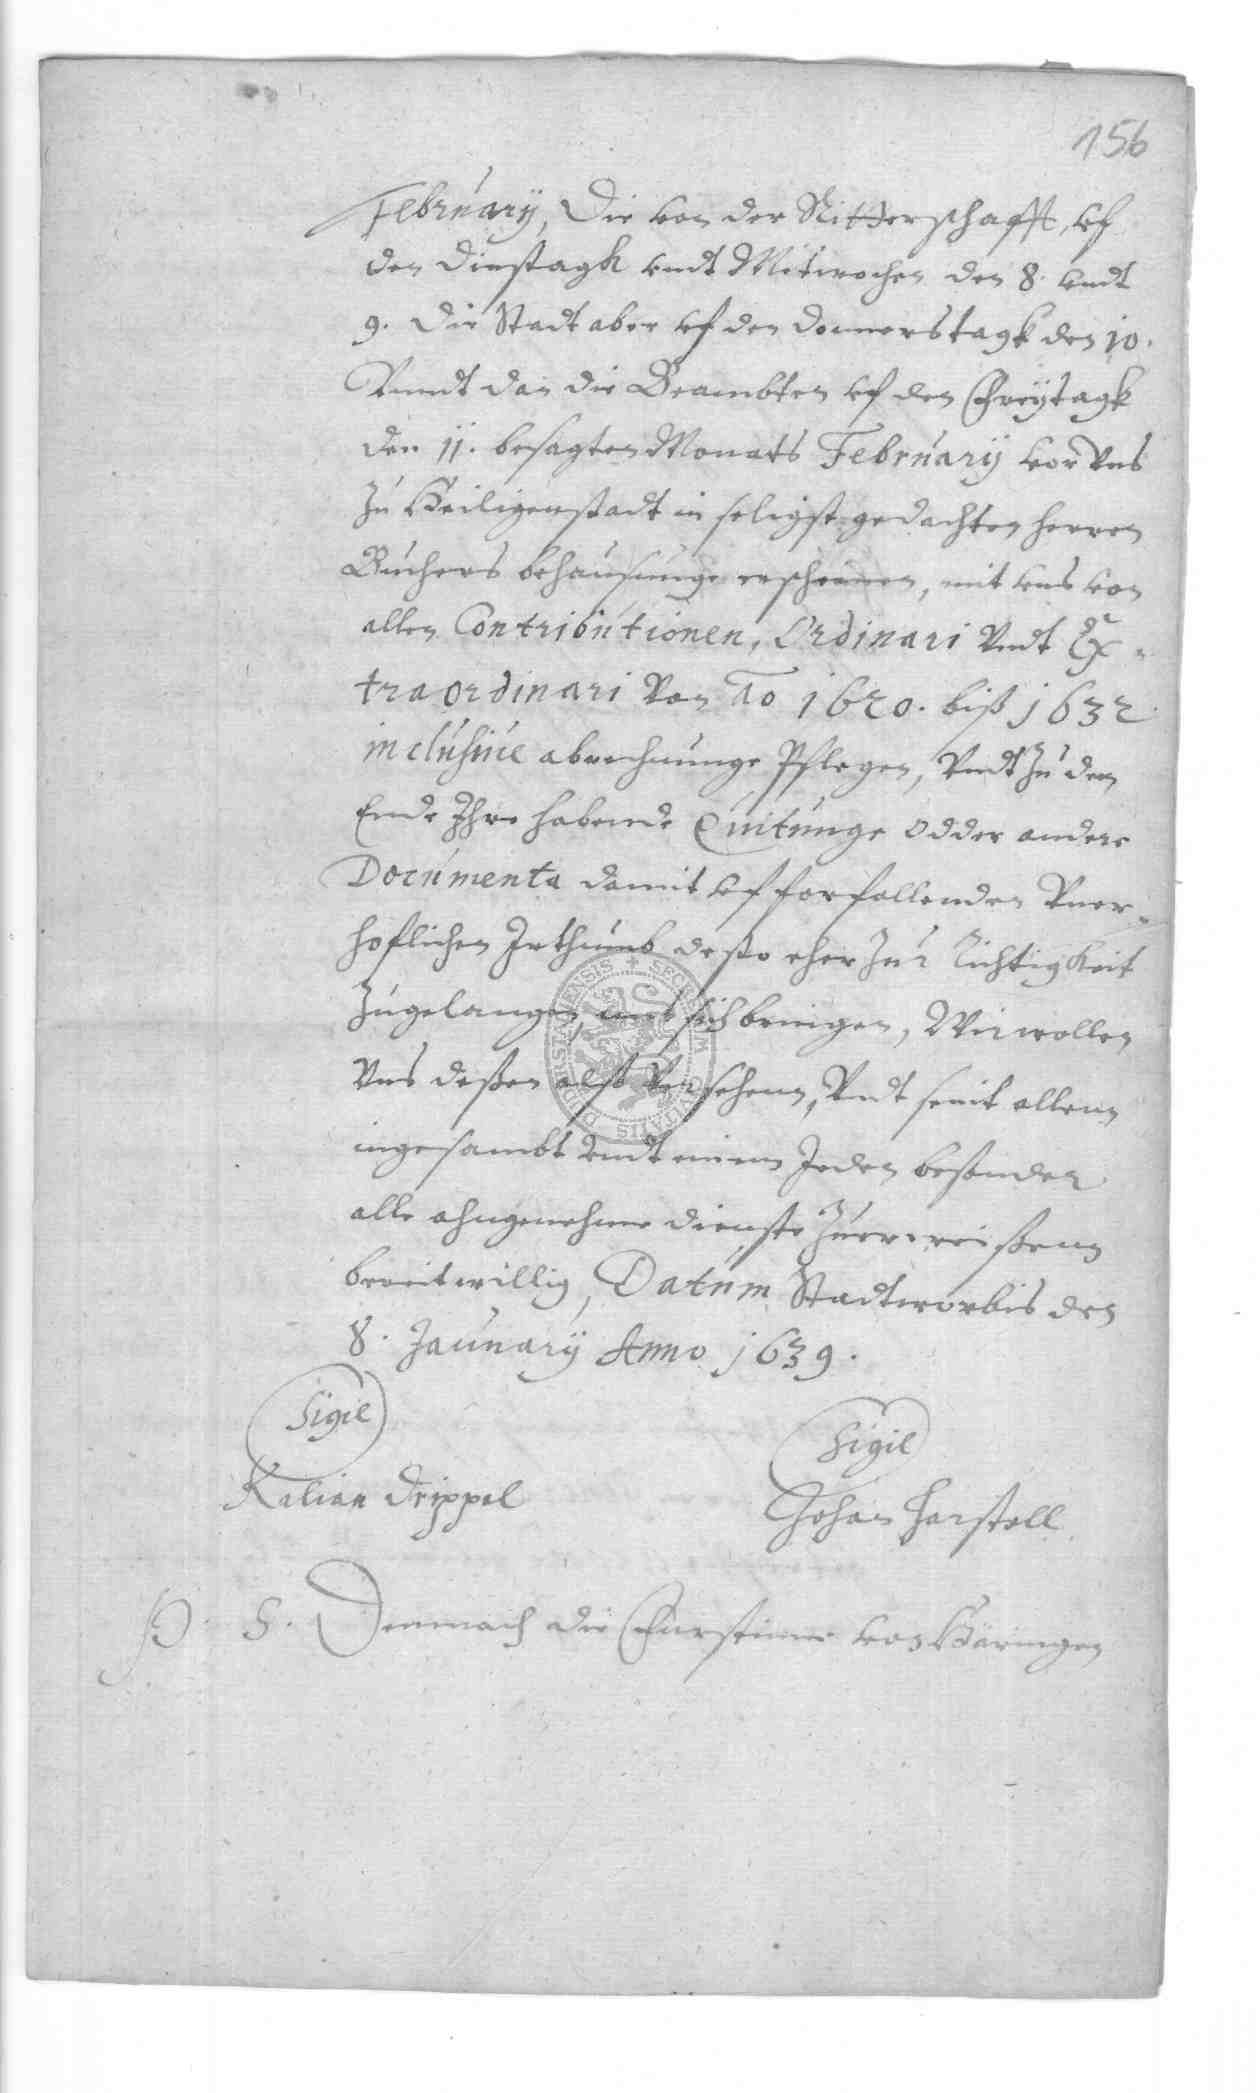 156
February, Die von der Ritterschafft, vf
den Dinstagk vndt Mitwochen den 8. vndt
9. Die Stadt aber vf den Donnerstagk den 10.
Vnndt dan die Beambten vf den Freÿtagk
den 11. besagten Monats Februarÿ vor Vns
Zu Heiligenstadt in seligst gedachten herren
Buchers behausunge erscheinen, mit vns von
allen Contributionen, Ordinari Vndt Ex-
traordinari Von Ao 1620. biß 1632
inclusiue abrechnunge Pflegen, Vndt Zu dem
Ende Ihre habende Quitunge odder andere
Documenta damit vf forfallenden Vuer-
hoflichen Irthumb desto eher Zur Richtigkeit
Zugelangen, mit sich bringen, Wir wollen
Vns deßen alß Versehenn, Vndt seint allenn
ingesambt vndt einem Jeden besonder
alle ahngenehme dienste Zuerweißenn
bereitwillig, Datum Stadtworbis den
8. January Anno 1639.
Sigil
Sigil
Kilian Drippel
Johan Harstall
P. S. Demnach die Fürstinne von